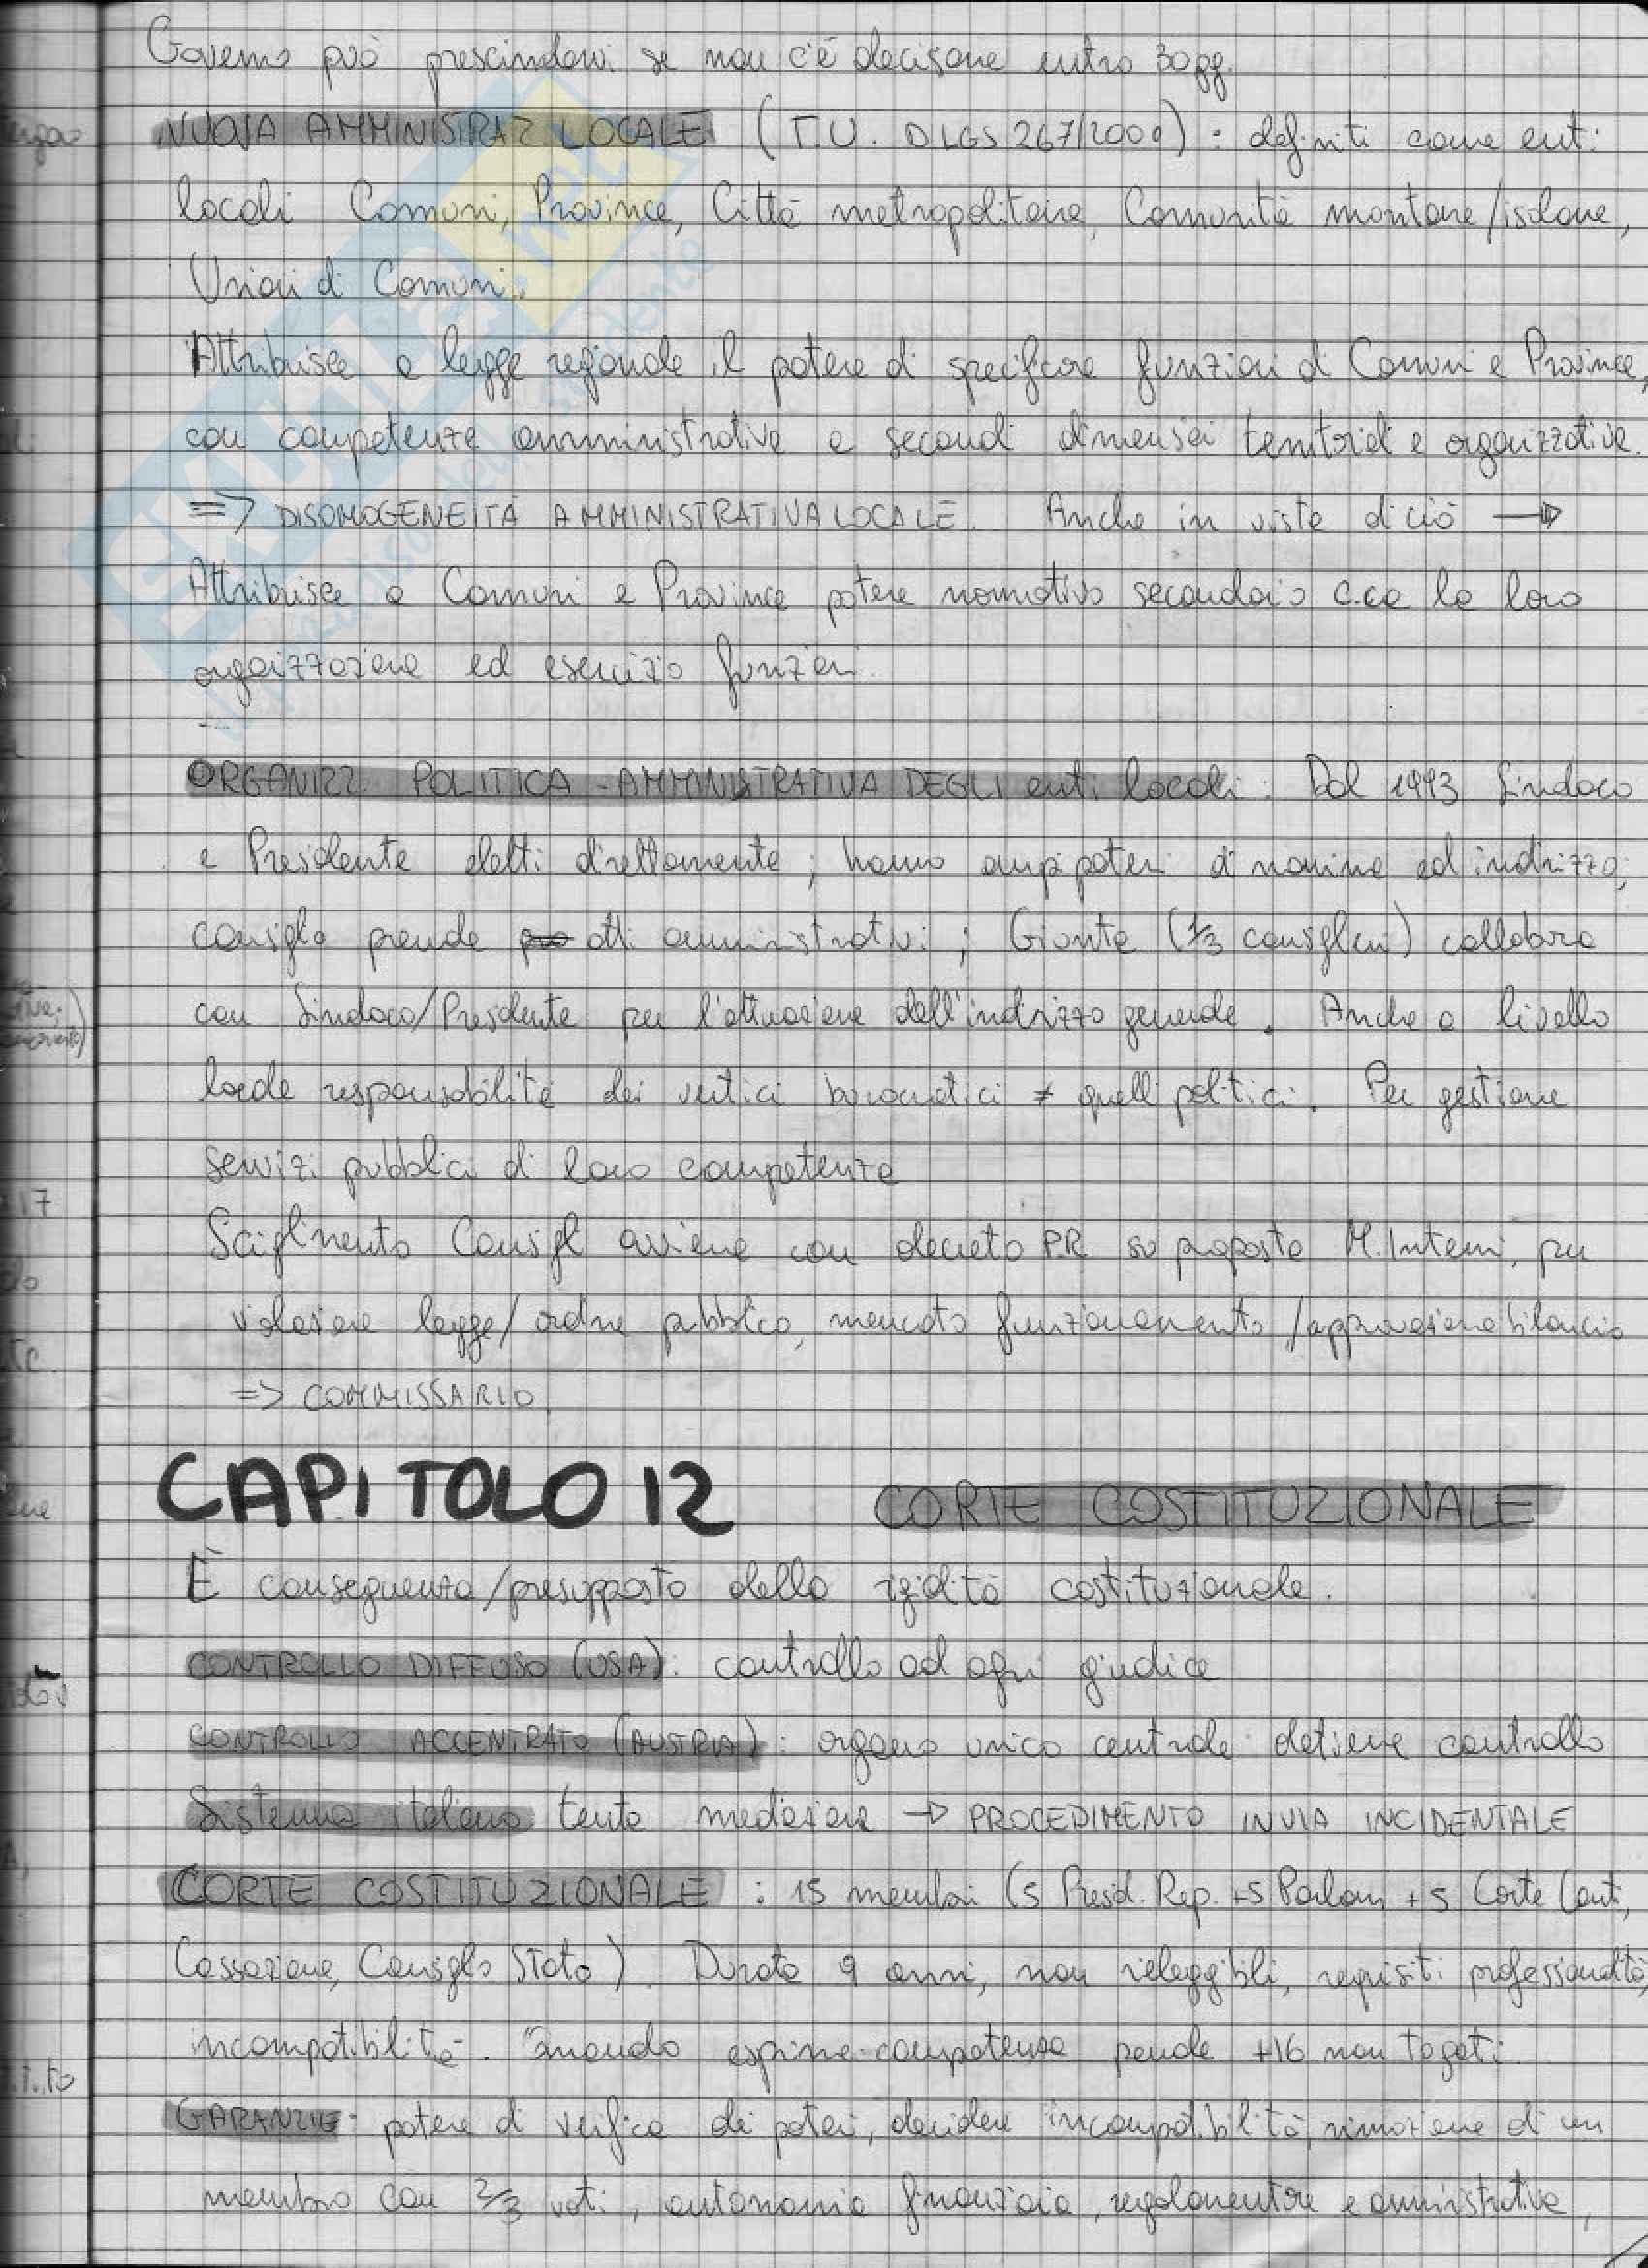 Governo può prescindervi se non c'è decisione entro 30 gg.
NUOVA AMMINISTRAZ LOCALE (T.U. D LGS 267/2000): definiti come enti
locali Comuni, Province, Città metropolitane, Comunità montane/isolane,
Unioni di Comuni.
Attribuisce a legge regionale il potere di specificare funzioni di Comuni e Province,
con competenze amministrative e secondi dimensioni territoriali e organizzative.
=> DISOMOGENEITÀ AMMINISTRATIVA LOCALE. Anche in vista di ciò →
Attribuisce a Comuni e Province potere normativo secondario c.ca la loro
organizzazione ed esercizio funzioni.
ORGANIZZ POLITICA - AMMINISTRATIVA DEGLI enti locali: Dal 1993 Sindaco
e Presidente eletti direttamente; hanno ampi poteri di nomina ed indirizzo;
consiglio prende atti amministrativi; Giunta (1/3 consiglieri) collabora
con Sindaco/Presidente per l'attuazione dell'indirizzo generale. Anche a livello
locale responsabilità dei vertici burocratici ≠ quelli politici. Per gestione
servizi pubblici di loro competenza
Scioglimento Consigl avviene con decreto PR su proposta M.Interni, per
violazione legge/ordine pubblico, mancato funzionamento/approvazione bilancio
=> COMMISSARIO.
CAPITOLO 12 CORTE COSTITUZIONALE
È conseguenza/presupposto della rigidità costituzionale.
CONTROLLO DIFFUSO (USA): controllo ad ogni giudice
CONTROLLO ACCENTRATO (AUSTRIA): organo unico centrale detiene controllo
Sistema italiano tenta mediazione → PROCEDIMENTO IN VIA INCIDENTALE
CORTE COSTITUZIONALE: 15 membri (5 Presid. Rep. +5 Parlam, +5 Corte Conti,
Cassazione, Consiglio Stato). Durata 9 anni, non rieleggibili, requisiti professionalità,
incompatibilità. Quando esprime competenza penale +16 non togati
GARANZIE: potere di verifica dei poteri, decidere incompatibilità, rimozione di un
membro con 2/3 voti, autonomia finanziaria, regolamentare e amministrativa,